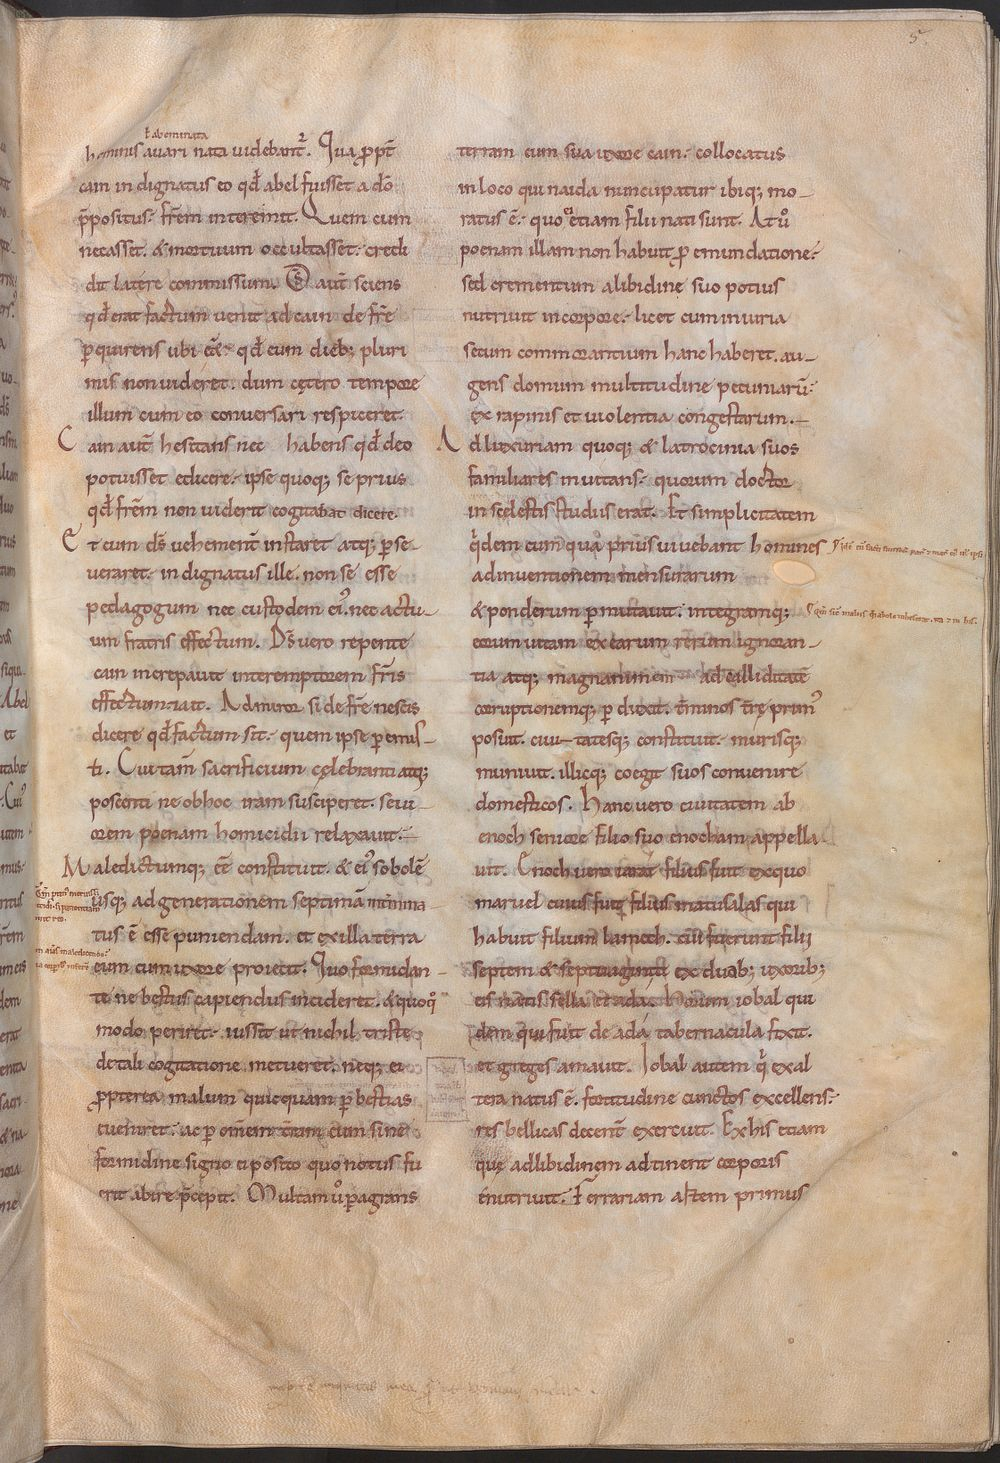 5
ł abominata
hominis avari nata videbantr̃. Qua ꝓpt̃
cain in dignatus eo qđ abel fuisset a dõ
p̃positus. fr̃em interemit. Quem cum
necasset. & mortuum occultasset. credi
dit latere commissum. D̃s aut̃ sciens
qđ erat factum venit ad cain de fr̃e
ꝑquirens ubi eẽt. qđ eum dieb; pluri
mis non videret. dum cętero tempore
illum cum eo conversari respiceret.
Cain aut̃ hesitans nec habens qđ deo
potuisset edicere. ipse quoq; se prius
qđ fr̃em non viderit cogitabat dicere.
Et cum d̃s vehement̃ instaret atq; ꝑse
veraret. in dignatus ille. non se esse
pedagogum nec custodem ei᾽. nec actu
um fratris effectum. D̃s vero repente
cain increpavit interemptorem fr̃is
effectum. Admiror si de fr̃e nescis
dicere qđ factum sit. quem ipse ꝑemis
ti. Cui tam̃ sacrificium cęlebranti atq;
poscenti ne ob hoc iram susciperet. sevi
orem poenam homicidii relaxavit.
Maledictumq; eẽ constituit. & ei᾽ sobolẽ
usq; ad generationem septimã intermina
tus ẽ esse puniendam. et ex illa terra
eum cum uxore proiecit. Quo formidan
te ne bestiis capiendus incideret. & quoq̊
modo periret. iussit ut nichil triste
de tali cogitatione metueret. neq; ei
ꝓpterea malum quicquam ꝑ bestias
eveniret. ac ꝑ omnem terram eum sine
formidine signo ei posito quo notus fu
erit abire p̃cepit. Multam ů ꝑagrans
terram cum sua uxore cain. collocatus
in loco qui naida nuncupatur ibiq; mo
ratus ẽ. quo ei etiam filii nati sunt. At ů
poenam illam non habuit ꝓ emundatione.
sed crementum a libidine suo potius
nutrivit in corpore. licet cum iniuria
secum commorantium hanc haberet. au
gens domum multitudine pecuniarũ.
ex rapinis et violentia congestarum.
Ad luxuriam quoq; & latrocinia suos
familiares invitans. quorum doctor
in scelestis studiis erat. Et simplicitatem
q̃dem cum qua prius vivebant homines
adinventionem mensurarum
& ponderum ꝑmutavit. integramq;
eorum vitam ex earum rerum ignoran
tia atq; magnanimem ad calliditatẽ
corruptionemq; ꝑ duxit. t̃minos t̃rę prim᾽
posuit. civi tatesq; constituit. murisq;
munivit. illicq; coegit suos convenire
domesticos. Hanc vero civitatem ab
enoch seniore filio suo enocham appella
vit. Enoch vero iarat filius fuit ex quo
maruel cuius fuit filius matusalas qui
habuit filium lamech. cui fuerunt filii
septem & septuaginta ex duob; uxorib;
eis natis sella et ada. Horum iobal qui
dem qui fuit de ada tabernacula fixit.
et greges amavit. Iobal autem q̃ ex al
tera natus ẽ. fortitudine cunctos excellens.
res bellicas decent̃ exercuit. Ex his etiam
quę ad libidinem adtinent corporis
enutrivit. Ferrariam artem primus